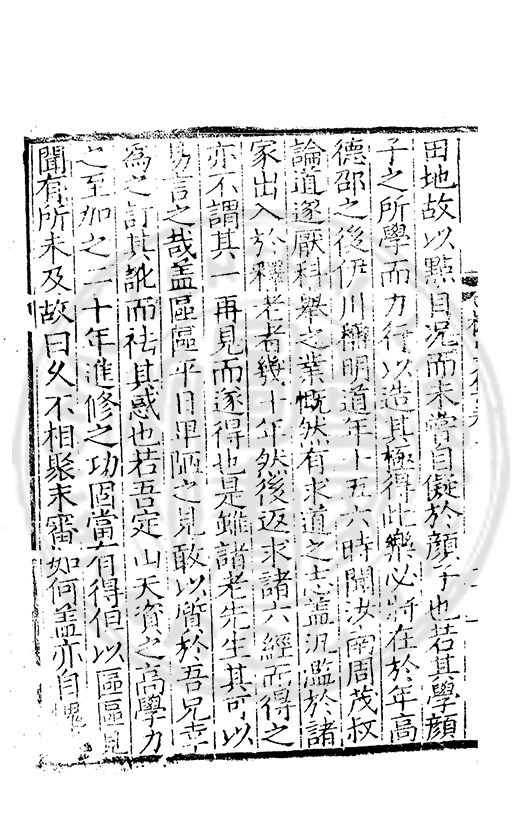 田地故以點自况而未嘗自儗於顔子也若其學顔
子之所學而力行以造其極得此樂必將在於年高
德邵之後伊川稱明道年十五六時聞汝南周茂叔
論道遂厭科舉之業慨然有求道之志蓋汎濫於諸
家出入於釋老者幾十年然後返求諸六經而得之
亦不謂其一再見而遂得也是雖諸老先生其可以
易言之哉蓋區區平日卑陋之見敢以質於吾兄幸
為之訂其訛而祛其惑也若吾定山天資之高學力
之至加之二十年進修之功固當有得但以區區見
聞有所未及故曰久不相聚未審如何盖亦自愧